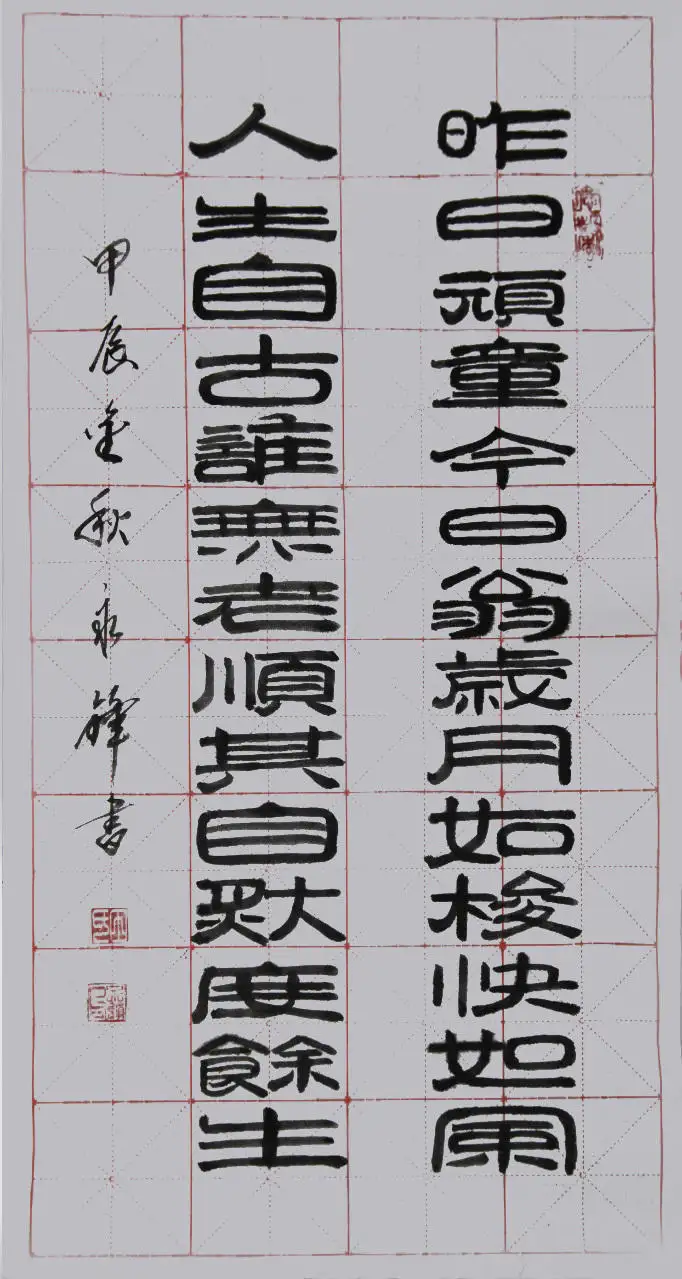 昨日頑童今日翁歲月如梭快如風
人生自古誰無老順其自然度餘生
甲辰金秋永鋒書